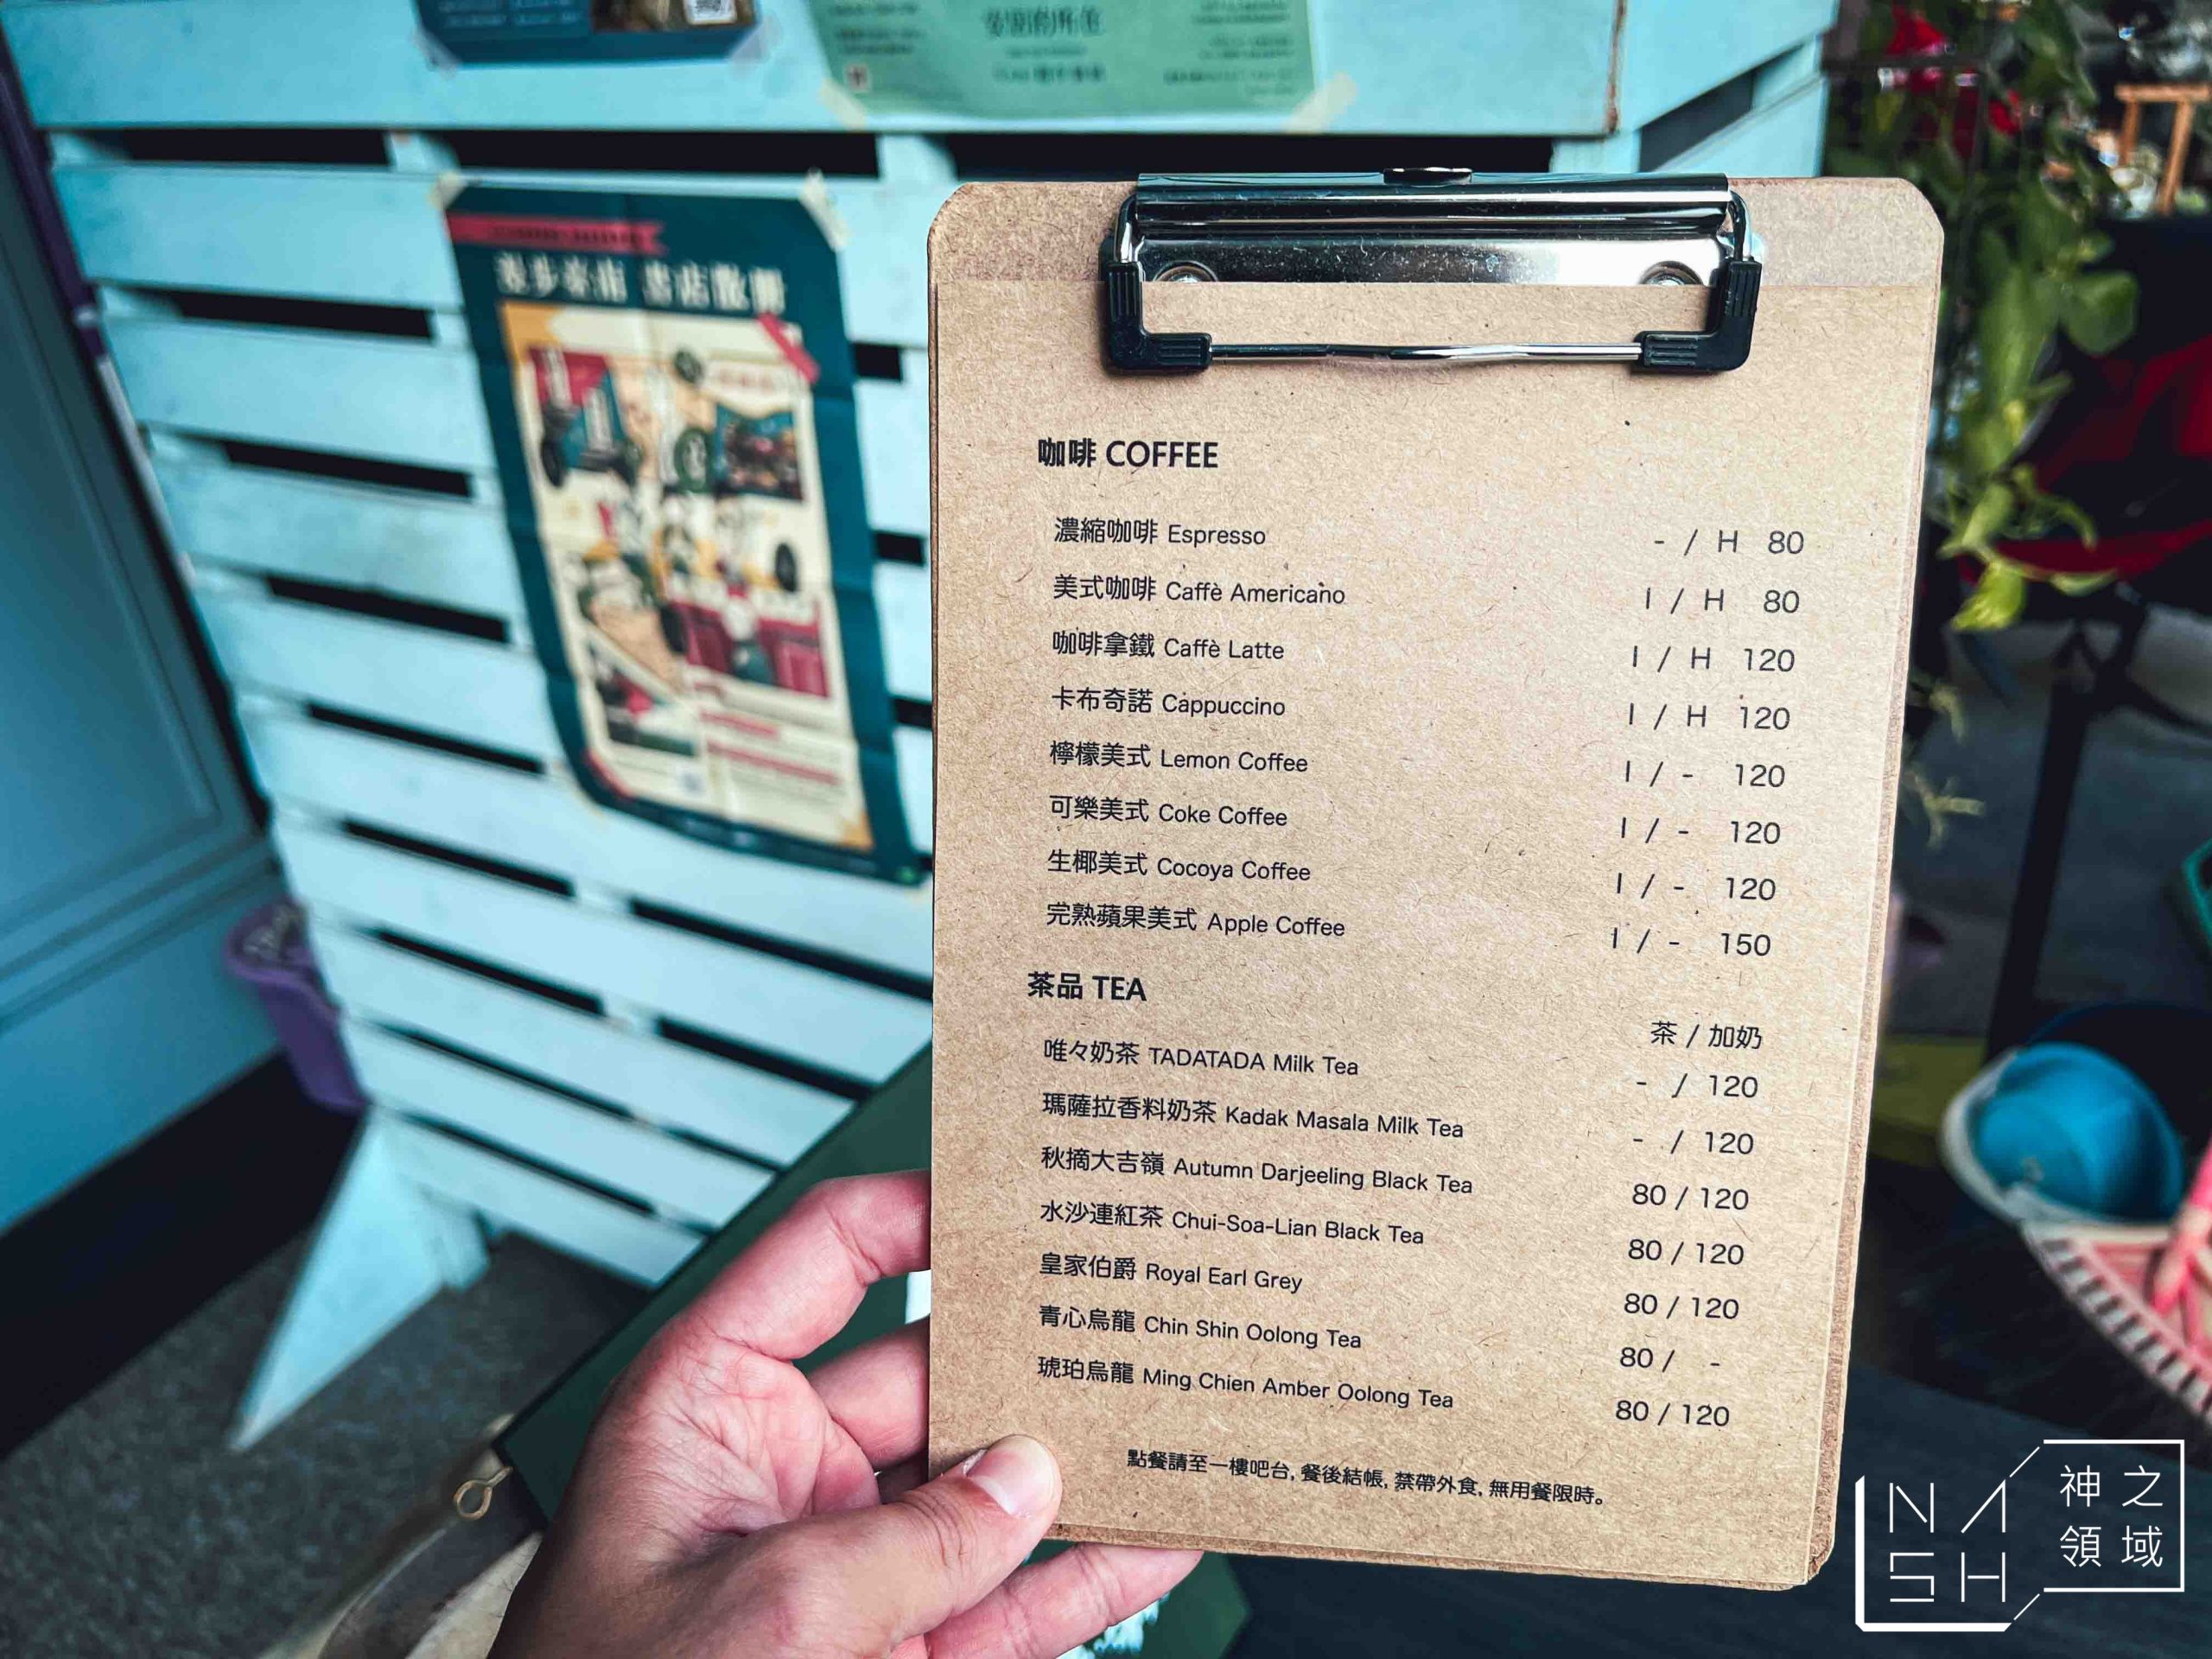 漫步臺南 書店散冊
咖啡 COFFEE
濃縮咖啡 Espresso - / H 80
美式咖啡 Caffè Americano I / H 80
咖啡拿鐵 Caffè Latte I / H 120
卡布奇諾 Cappuccino I / H 120
檸檬美式 Lemon Coffee I / - 120
可樂美式 Coke Coffee I / - 120
生椰美式 Cocoya Coffee I / - 120
完熟蘋果美式 Apple Coffee I / - 150
茶品 TEA
茶 / 加奶
唯々奶茶 TADATADA Milk Tea - / 120
瑪薩拉香料奶茶 Kadak Masala Milk Tea - / 120
秋摘大吉嶺 Autumn Darjeeling Black Tea 80 / 120
水沙連紅茶 Chui-Soa-Lian Black Tea 80 / 120
皇家伯爵 Royal Earl Grey 80 / 120
青心烏龍 Chin Shin Oolong Tea 80 / -
琥珀烏龍 Ming Chien Amber Oolong Tea 80 / 120
點餐請至一樓吧台, 餐後結帳, 禁帶外食, 無用餐限時。
NASH
神之
領域